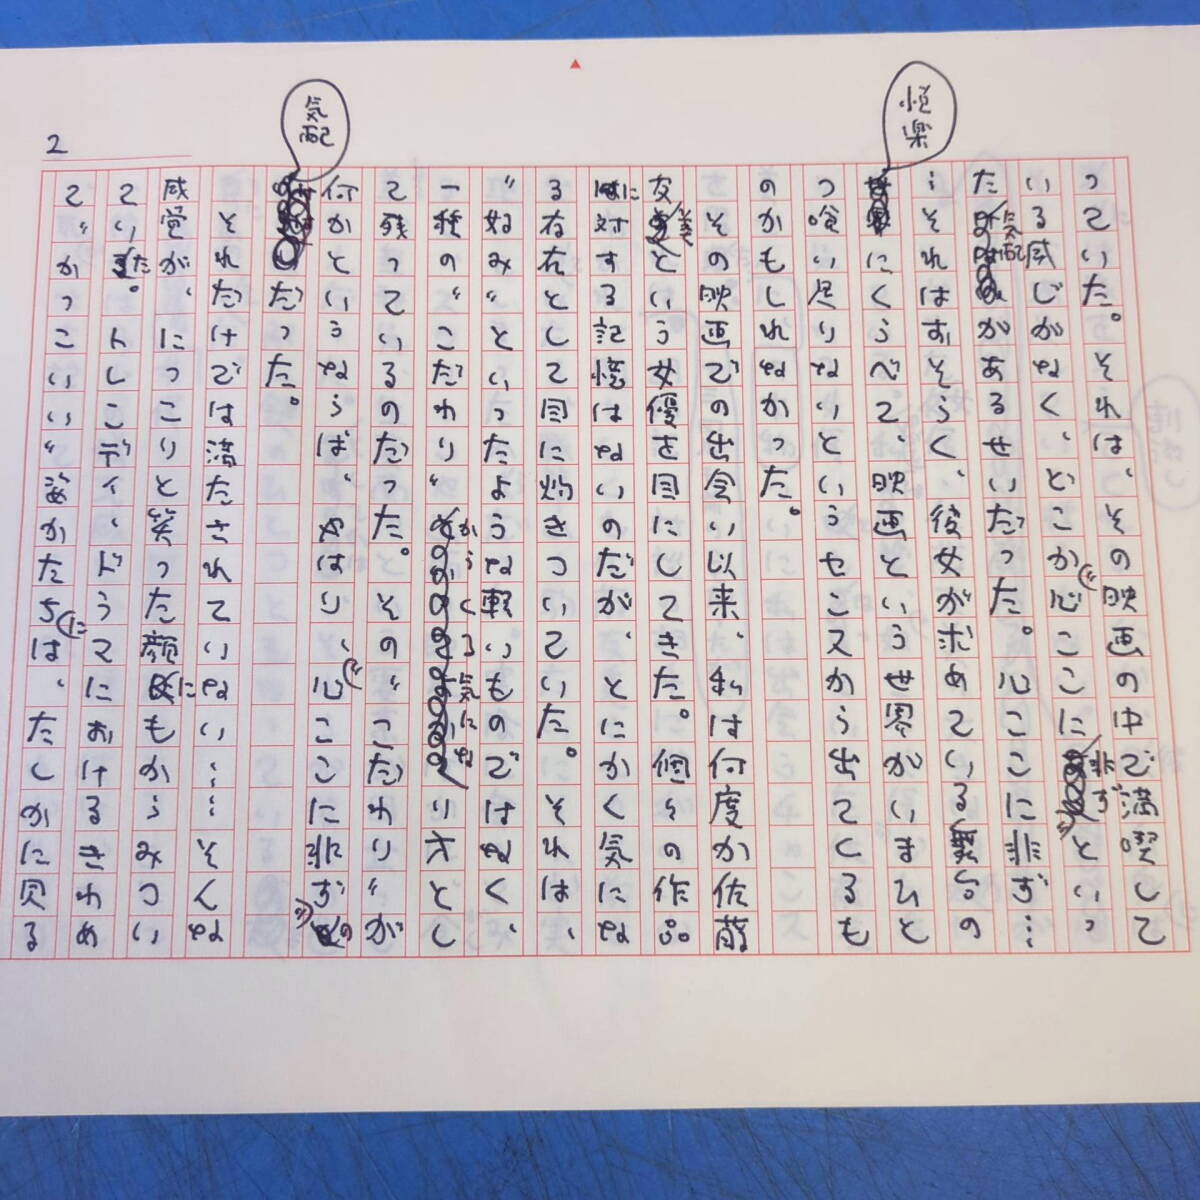 2
っていた。それは、その映画の中で満喫して
いる感じがなく、どこか心ここに非ずといっ
た気配があるせいだった。心ここに非ず…
…それはおそらく、彼女が求めている
悦楽にくらべて、映画という世界がいまひと
つ喰い足りないというセンスから出てくるも
のかもしれなかった。
その映画での出会い以来、私は何度か佐藤
友美という女優を目にしてきた。個々の作品
に対する記憶はないのだが、とにかく気にな
る存在として目に灼きついていた。それは、
〝好み〟といったような軽いものではなく、
一種の〝こだわり〟からくる気になりかたとし
て残っているのだった。その〝こだわり〟が
何かというならば、やはり、〝心ここに非ず〟の
気配だった。
それだけでは満たされていない……そんな
感覚が、にっこりと笑った顔にもからみつい
ていた。トレンディ、ドラマにおけるきわめ
て〝かっこいい〟姿かたちには、たしかに見る